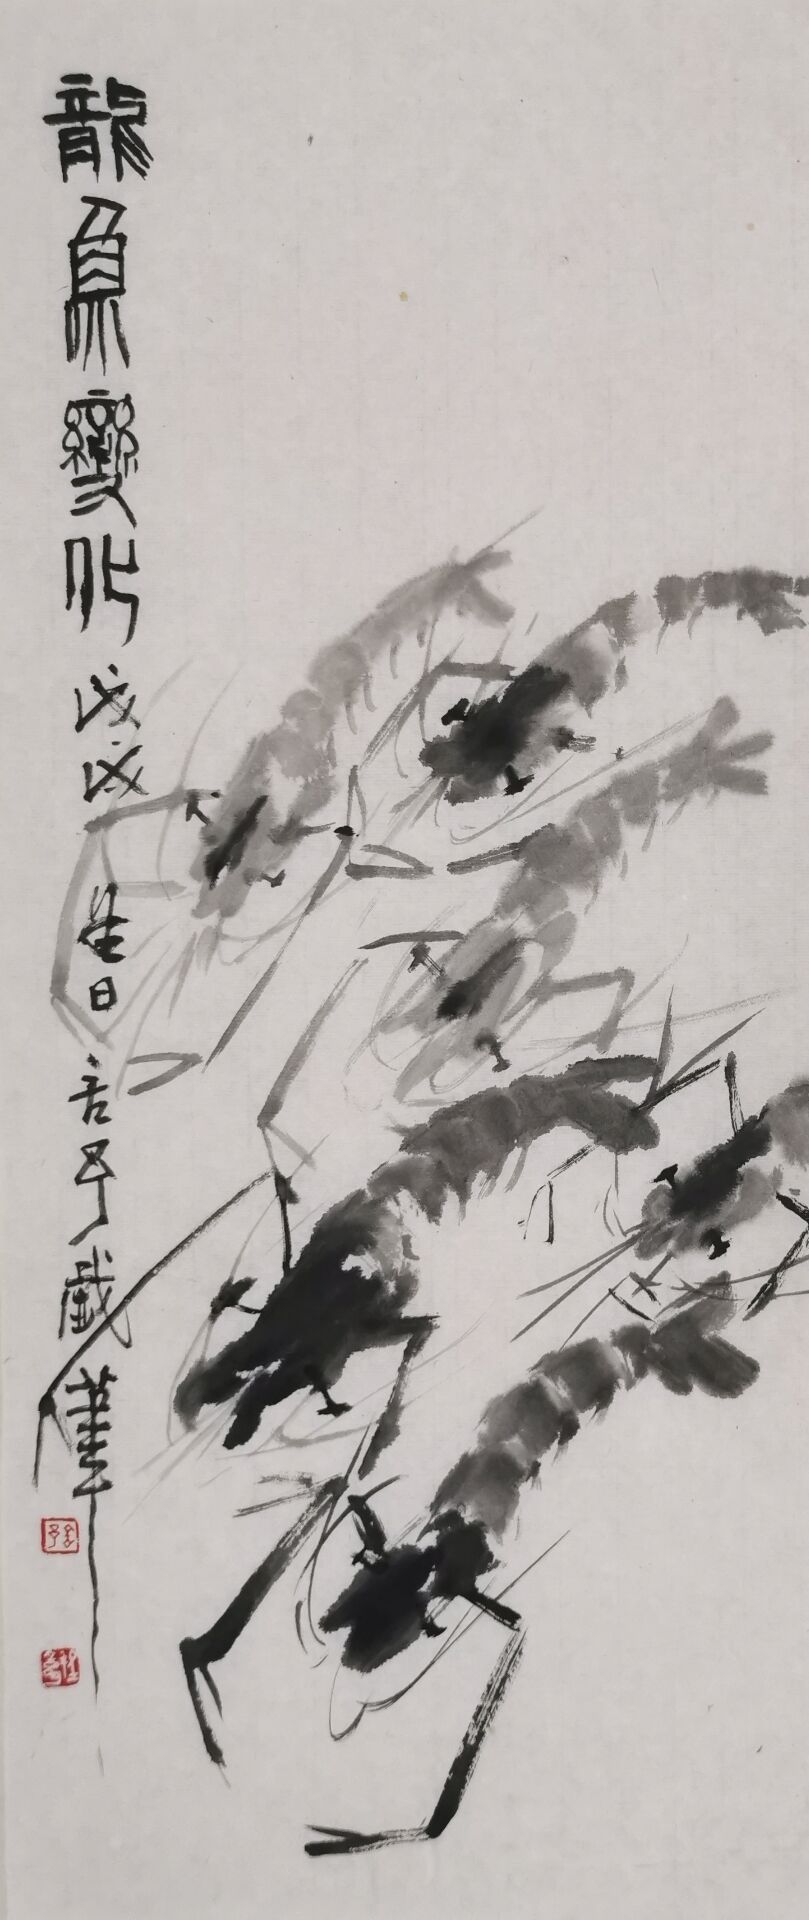 龍魚變化戊戌生日言子戲筆